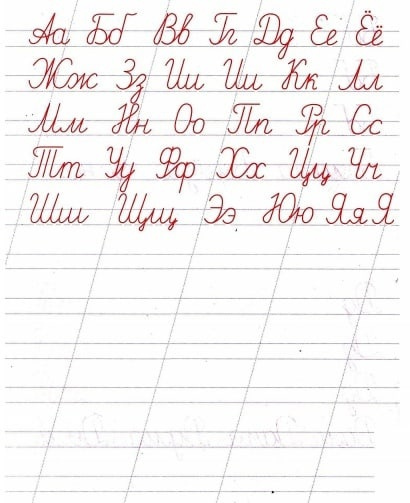 Аа Бб Вв Гг Дд Ее Ёё
Жж Зз Ии Ии Кк Лл
Мм Нн Оо Пп Рр Сс
Тт Уу Фф Хх Цц Чч
Шш Щщ Ээ Юю Яя Я